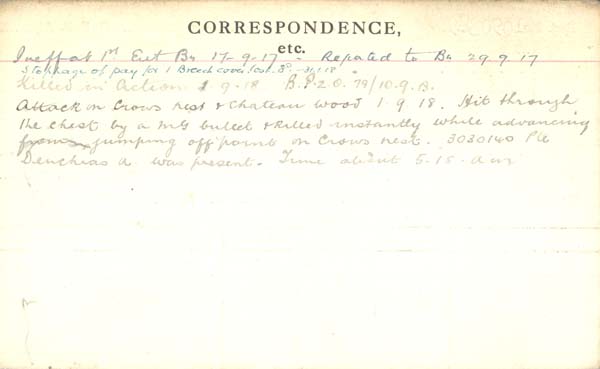 CORRESPONDENCE,
etc.
Ineff at 1st Ent Bn 17-9-17 - Repated to Bn 29.9.17
Stoppage of pay for 1 Breech cover lost. 31/1/18
Killed in Action 1-9-18 B.P.2.O. 79/10.9.18.
Attack on Crows nest & Chateau Wood 1.9.18. Hit through
the chest by a MG bullet & killed instantly while advancing
from jumping off point on Crows nest. 3030140 Pte
was present. Time about 5-15. am